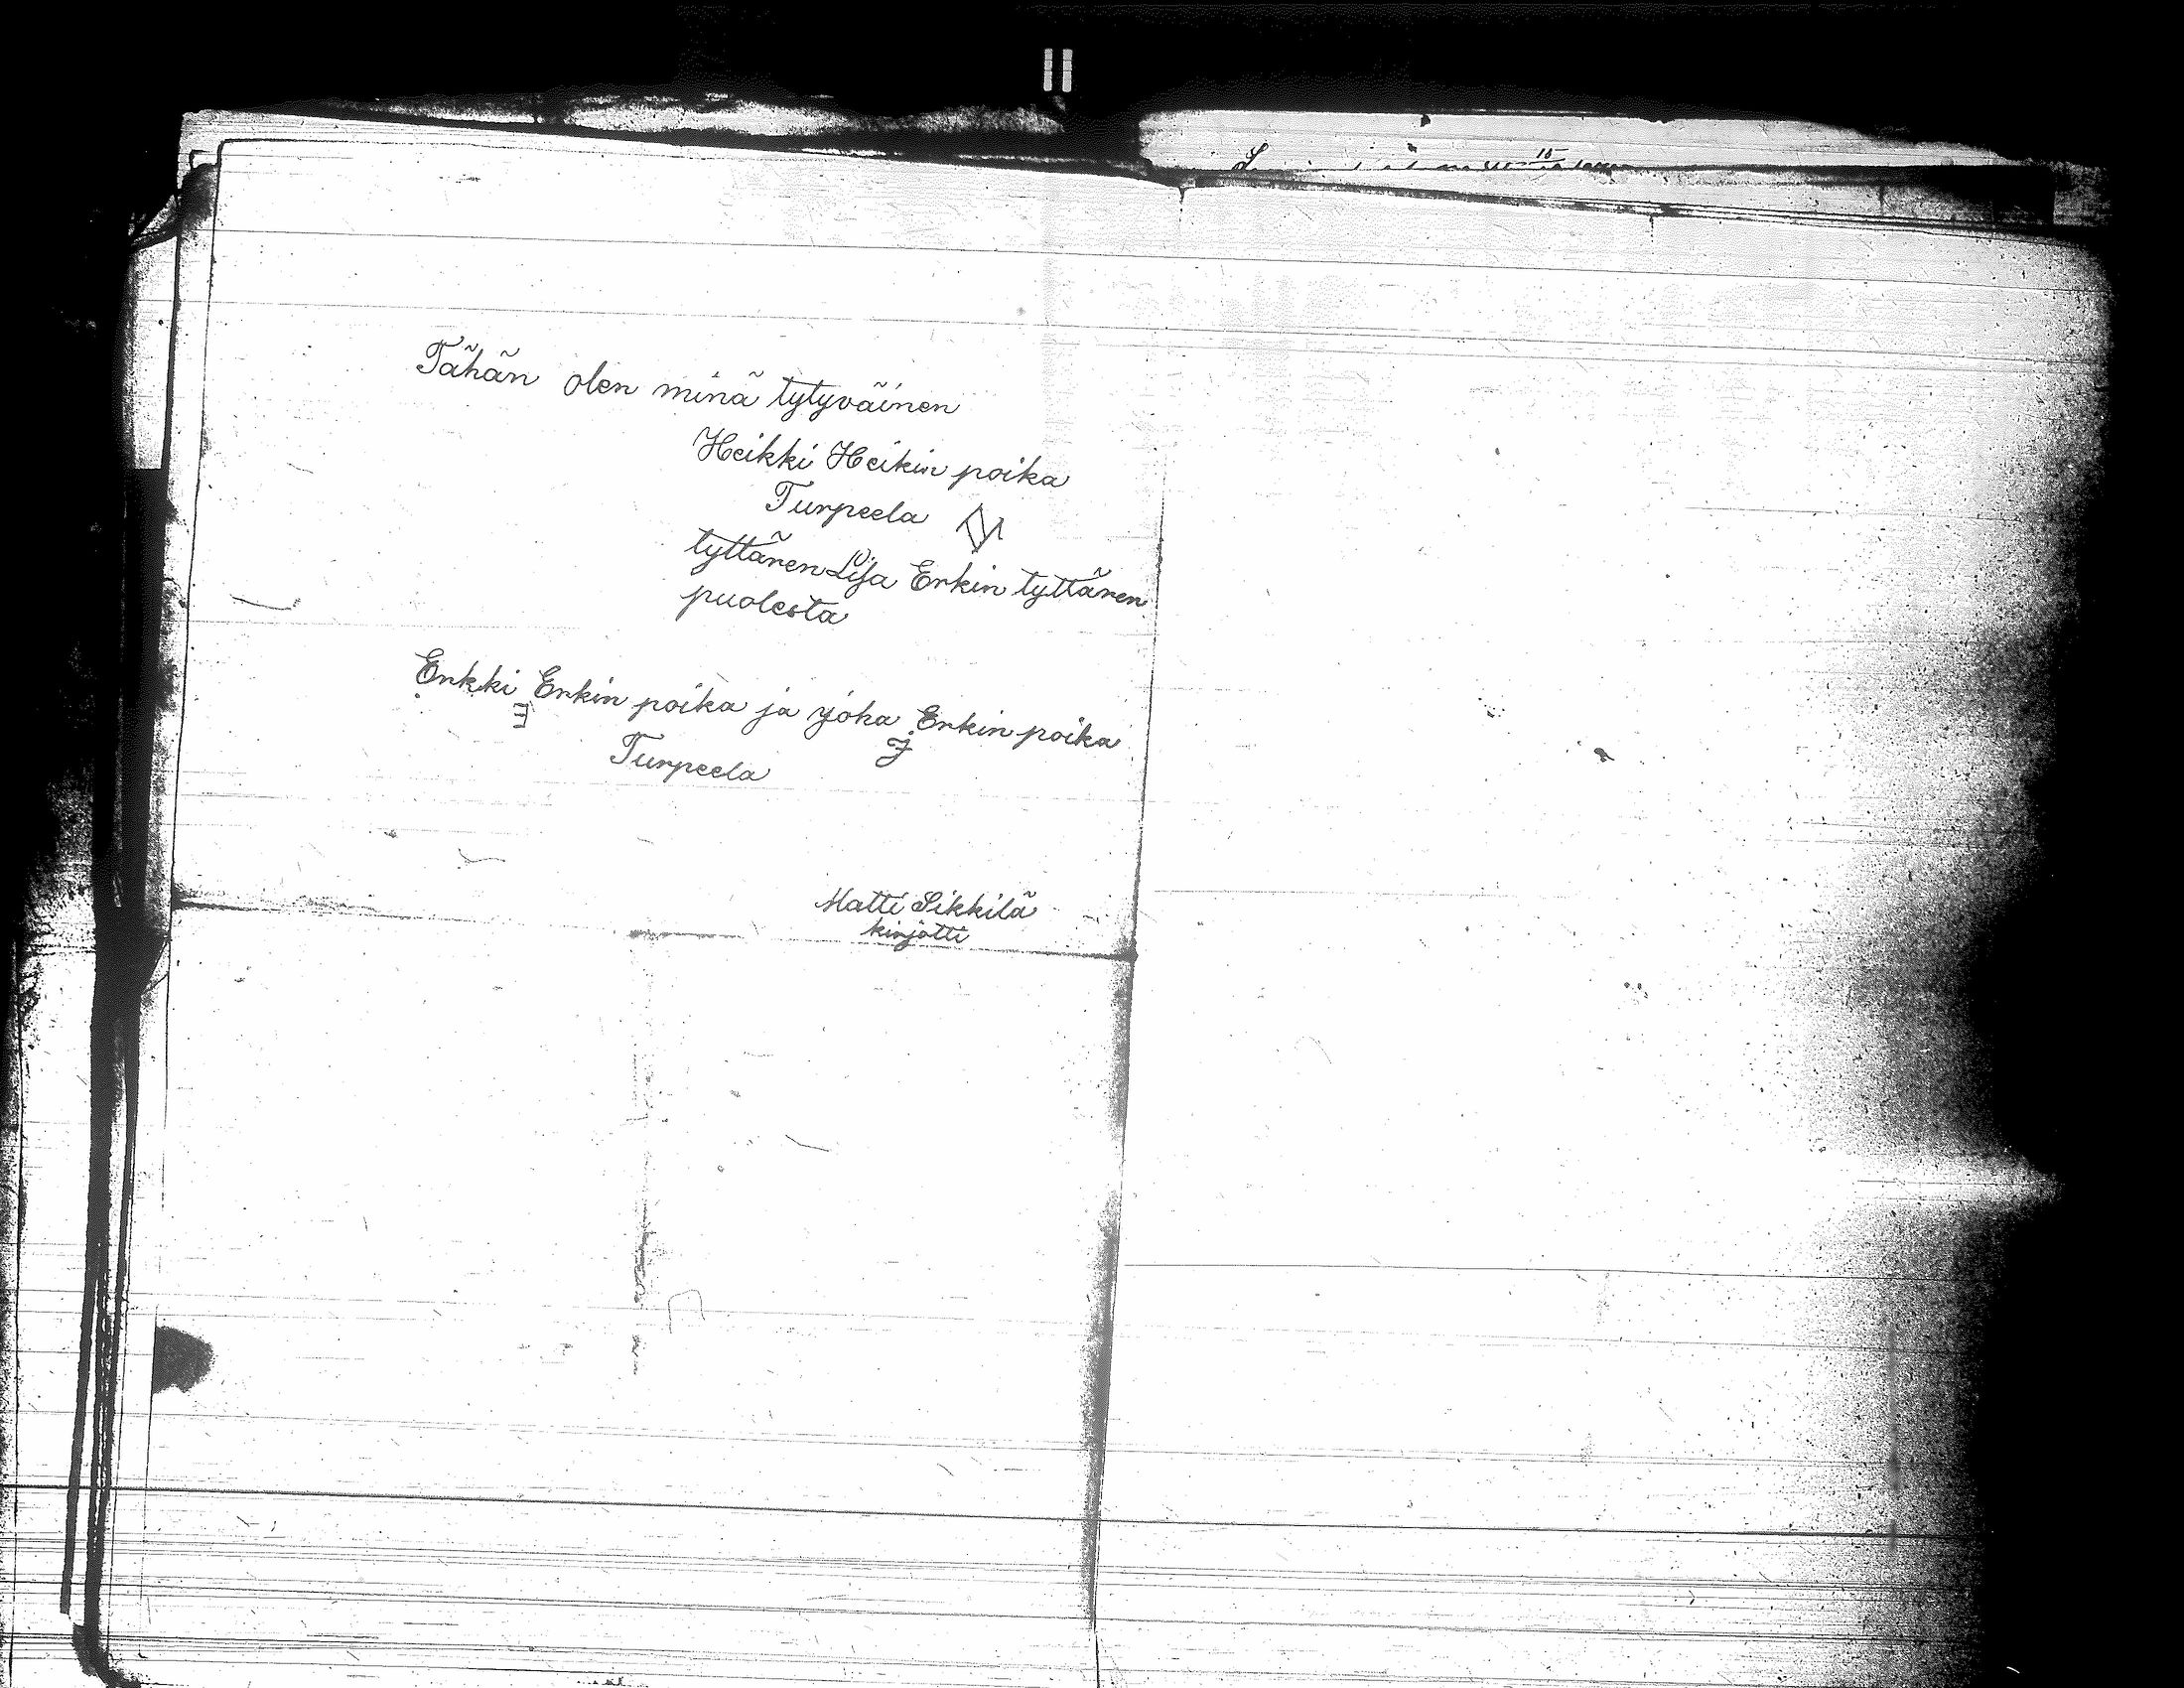 Tähän olen minä tytyväinen
Heikki Heikin poika
Turpeela
tyttären Lisa Erkin tyttären
puolesta
Erkki Erkin poika ja Joha Erkin poika
E J
Turpeela
Matti Sikkilä
kirjotti